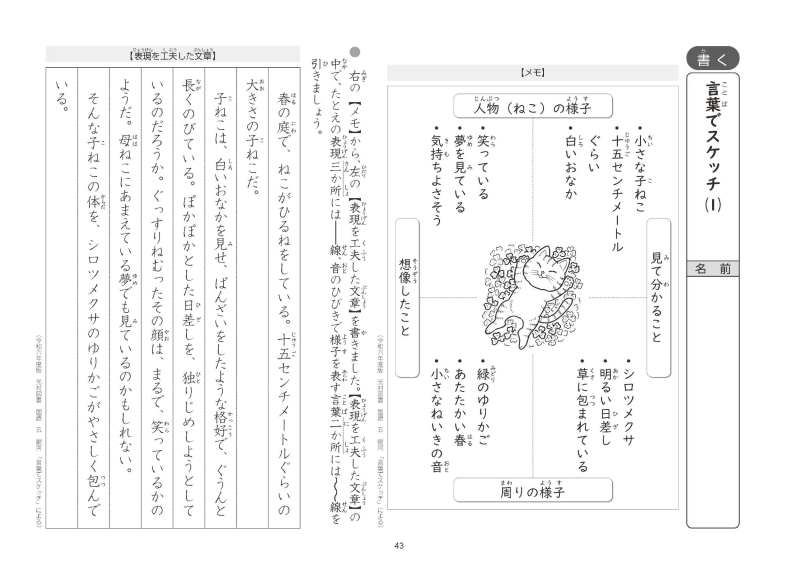 書く
言葉でスケッチ (1)
名前
【メモ】
人物（ねこ）の様子
見て分かること
・小さな子ねこ
・十五センチメートル
ぐらい
・白いおなか
・笑っている
・夢を見ている
・気持ちよさそう
想像したこと
・シロツメクサ
・明るい日差し
・草に包まれている
・緑のゆりかご
・あたたかい春
・小さなねいきの音
周りの様子
（令和六年度版 光村図書 国語 五 銀河 「言葉でスケッチ」による）
● 右の【メモ】から、左の【表現を工夫した文章】を書きました。【表現を工夫した文章】の
中で、たとえの表現三か所には――線、音のひびきで様子を表す言葉二か所には〜〜線を
引きましょう。
【表現を工夫した文章】
春の庭で、ねこがひるねをしている。十五センチメートルぐらいの
大きさの子ねこだ。
子ねこは、白いおなかを見せ、ばんざいをしたような格好で、ぐうんと
長くのびている。ぽかぽかとした日差しを、独りじめしようとして
いるのだろうか。ぐっすりねむったその顔は、まるで、笑っているかの
ようだ。母ねこにあまえている夢でも見ているのかもしれない。
そんな子ねこの体を、シロツメクサのゆりかごがやさしく包んで
いる。
（令和六年度版 光村図書 国語 五 銀河 「言葉でスケッチ」による）
43